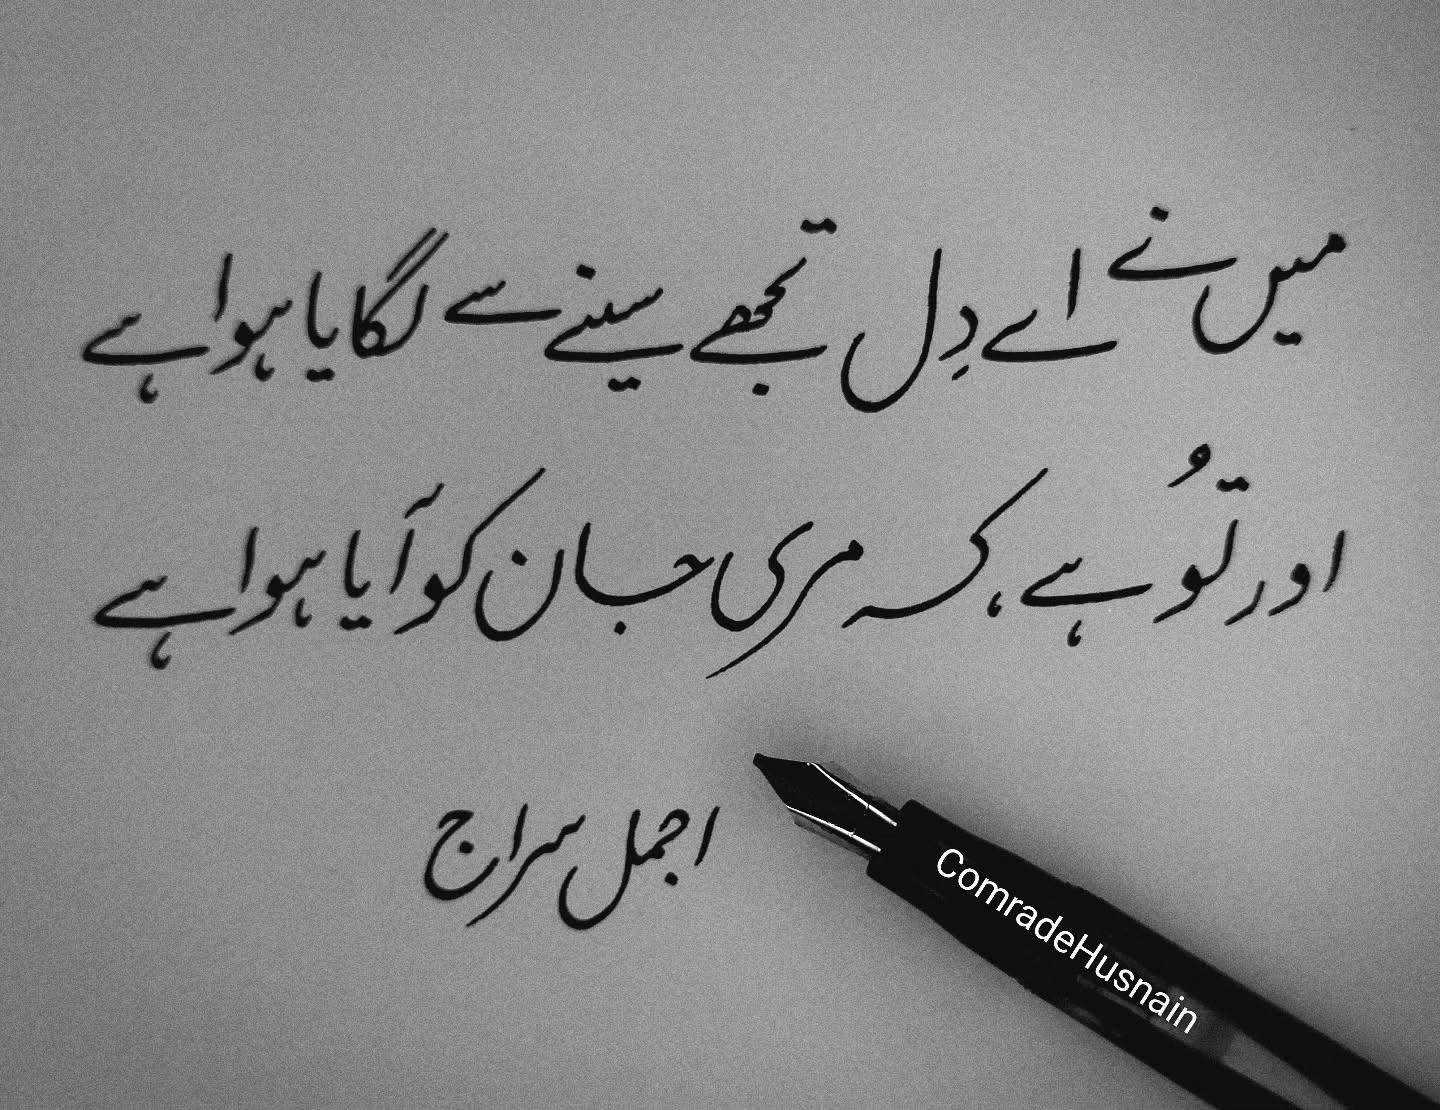 میں نے اے دِل تجھے سینے سے لگایا ہوا ہے
اور تُو ہے، کہ مری جان کو آیا ہوا ہے
اجمل سراج
ComradeHusnain